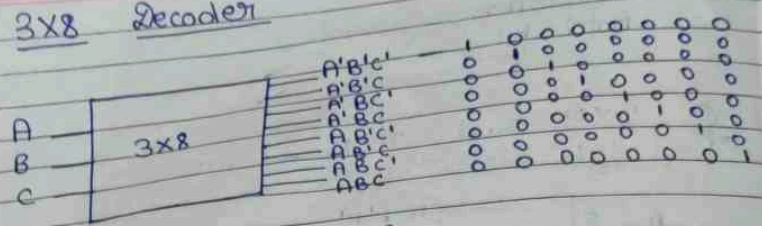 3X8 Decoder
A'B'C' 1 0 0 0 0 0 0 0
A'B'C 0 1 0 0 0 0 0 0
A'BC' 0 0 1 0 0 0 0 0
A'BC 0 0 0 1 0 0 0 0
AB'C' 0 0 0 0 1 0 0 0
AB'C 0 0 0 0 0 1 0 0
ABC' 0 0 0 0 0 0 1 0
ABC 0 0 0 0 0 0 0 1
A
B
C
3X8